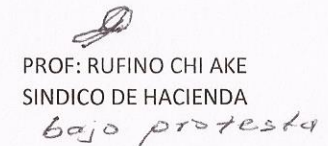 PROF: RUFINO CHI AKE
SINDICO DE HACIENDA
bajo protesta